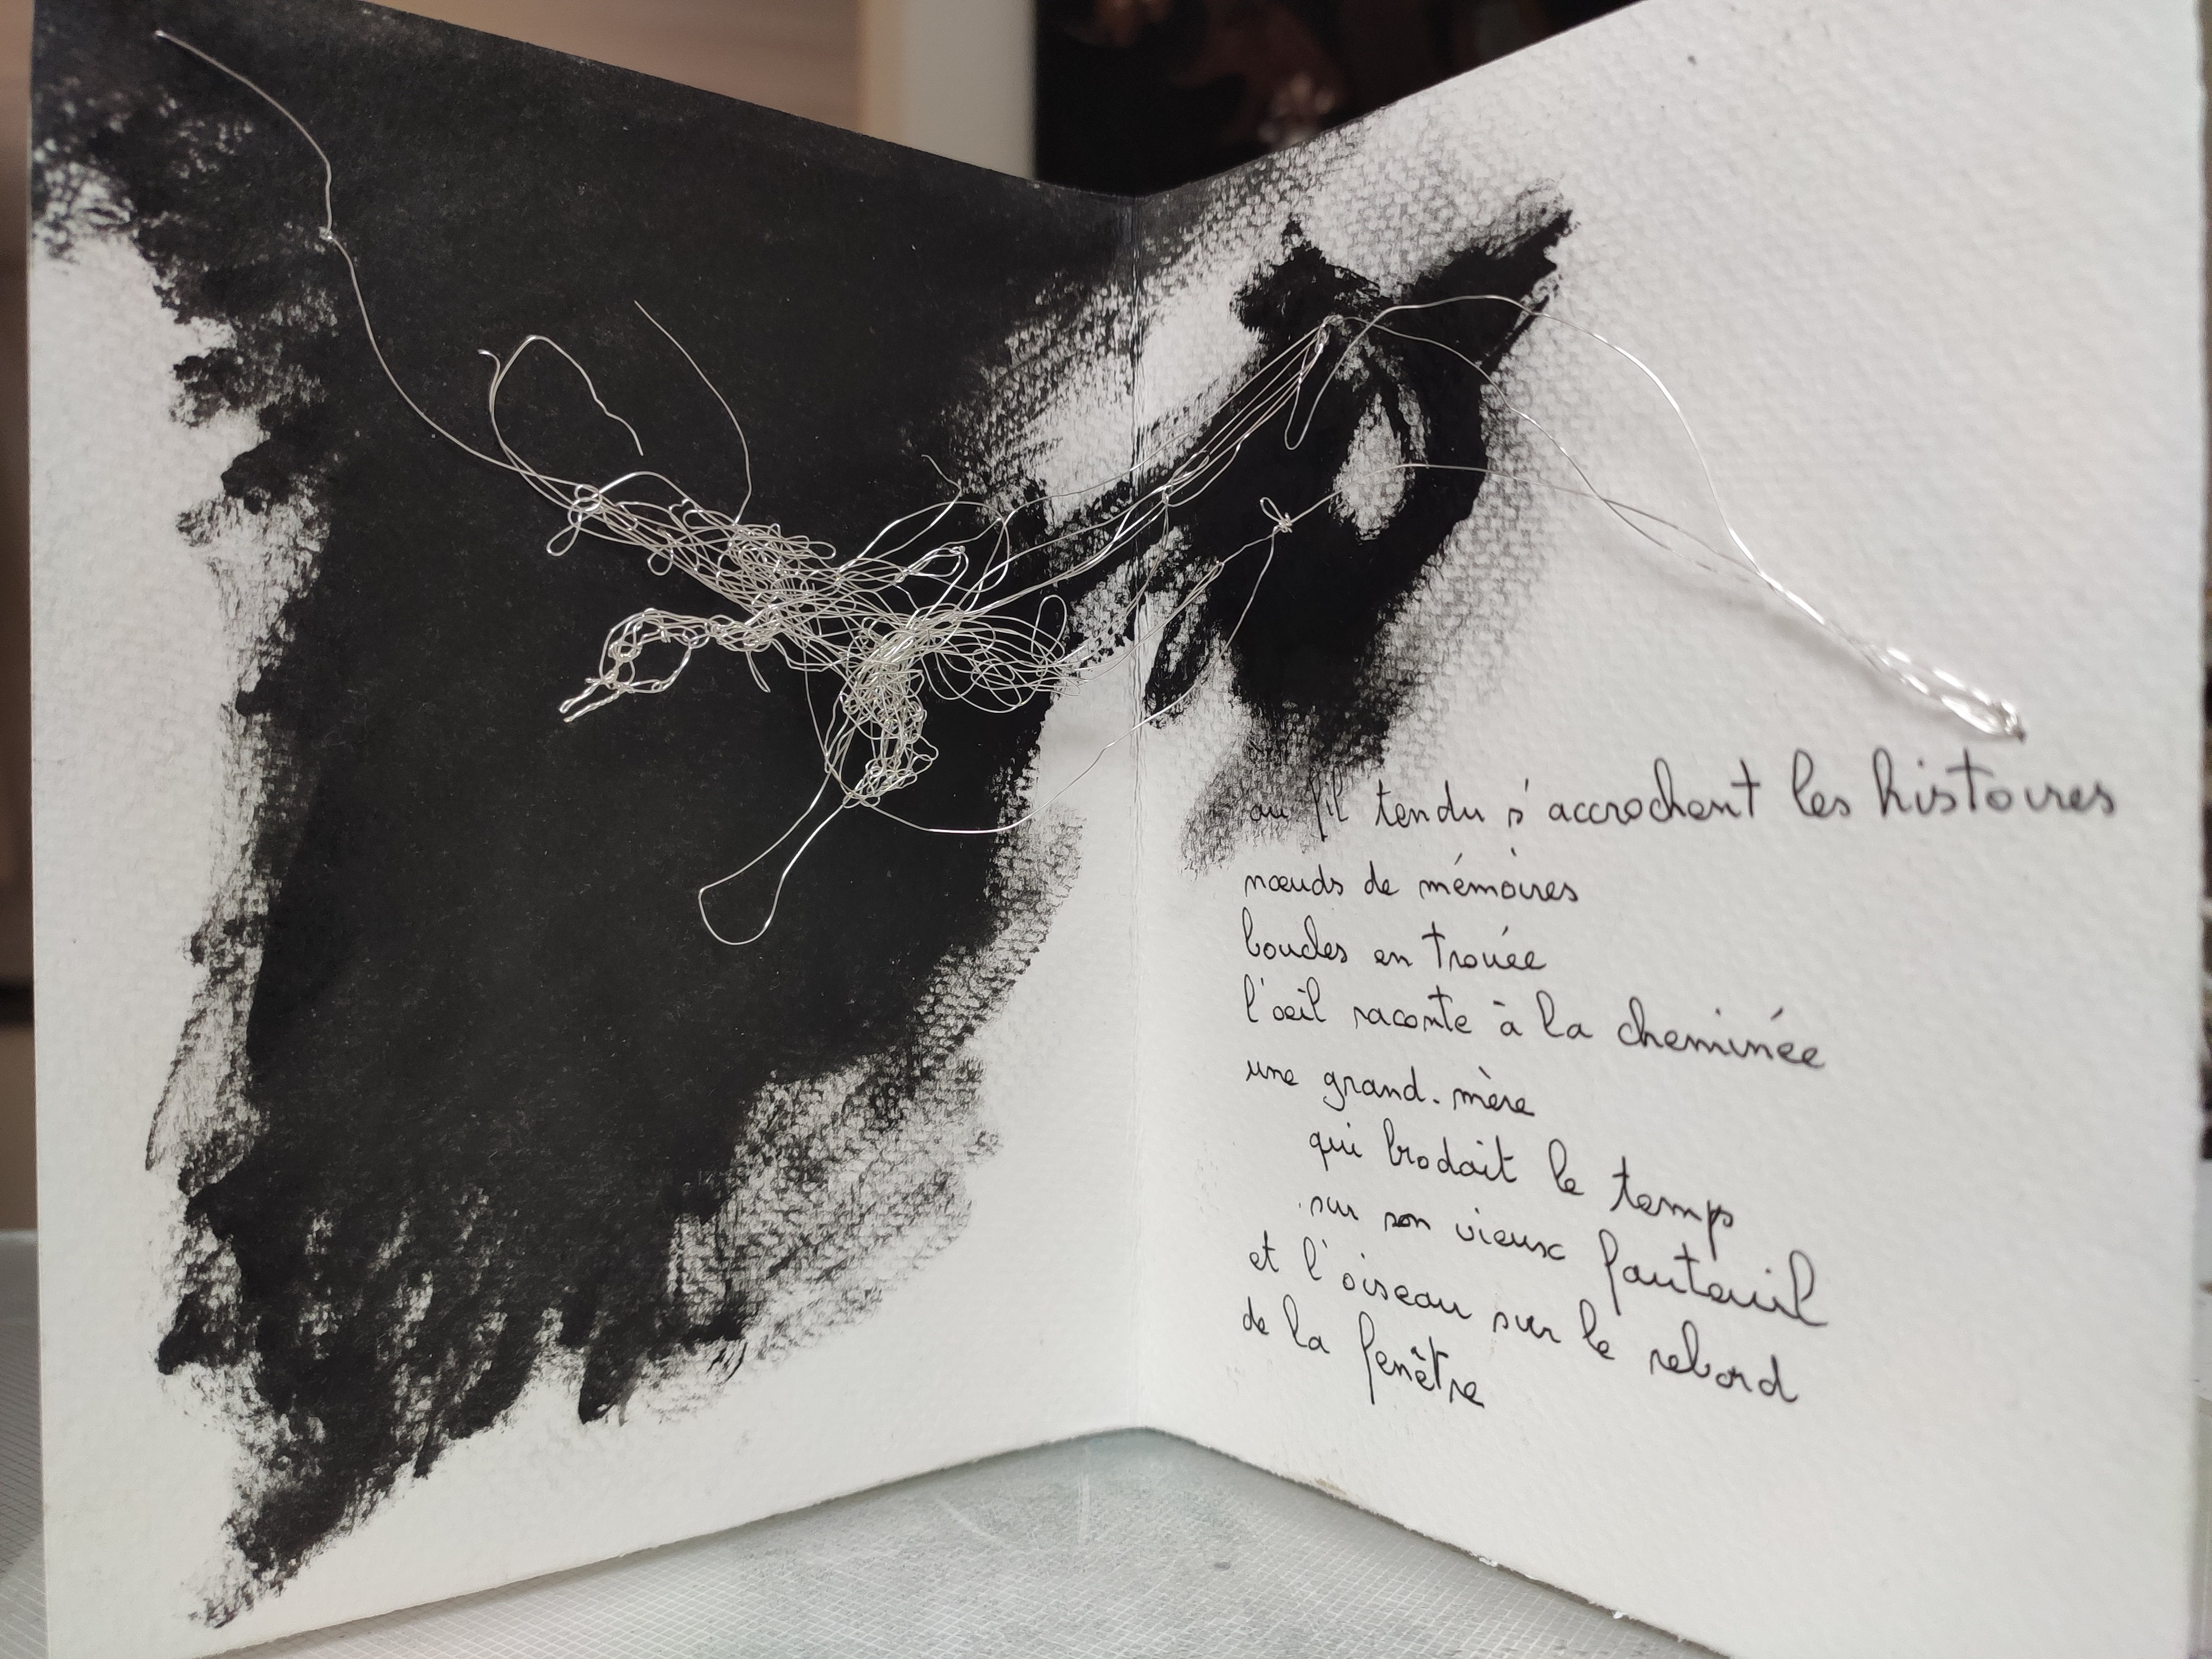 au fil tendu s'accrochent les histoires
nœuds de mémoires
boucles en trouée
l'œil raconte à la cheminée
une grand-mère
qui brodait le temps
sur son vieux fauteuil
et l'oiseau sur le rebord
de la fenêtre